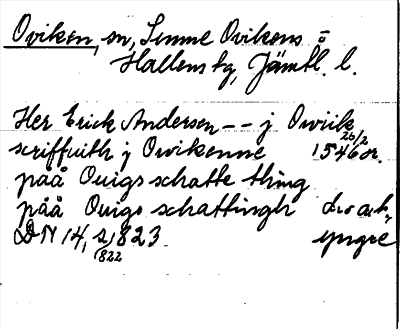 Oviken, sn, Sunne Ovikens o
Hallens tg, Jämtl. l.
Her Erick Andersen -- j Owiik
scriffuith j Owikenne 1546 or. 26/2
paå Ouigs schatte thing
paå Ouigs schattingh
DN 14, s, 823 yngre
822